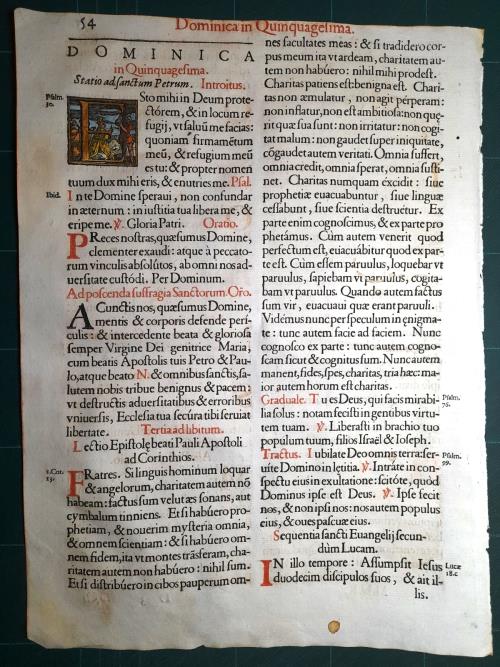 54
Dominica in Quinquagesima.
DOMINICA
in Quinquagesima.
Statio ad sanctum Petrum. Introitus.
Psalm. 30.
ISto mihi in Deum prote-
ctórem, & in locum re-
fugij, vt saluũ me facias:
quoniam firmamẽtum
meũ, & refugium meũ
es tu: & propter nomen
tuum dux mihi eris, & enutries me. Psal.
Ibid.
In te Domine speraui, non confundar
in æternum : in iustitia tua libera me, &
eripe me. ℣. Gloria Patri. Oratio.
PReces nostras, quæsumus Domine,
clementer exaudi: atque à peccato-
rum vinculis absolútos, ab omni nos ad-
uersitate custódi. Per Dominum.
Ad poscenda suffragia Sanctorum. Oro.
A Cunctis nos, quæsumus Domine,
mentis & corporis defende perí-
culis : & intercedente beata & gloriosa
semper Virgine Dei genitrice Maria,
cum beatis Apostolis tuis Petro & Pau-
lo, atque beato N. & omnibus sanctis, sa-
lutem nobis tribue benignus & pacem:
vt destructis aduersitatibus & erroribus
vniuersis, Ecclesia tua secúra tibi seruiat
libertate. Tertia ad libitum.
Lectio Epistolę beati Pauli Apostoli
ad Corinthios.
1.Cor. 13.
FRatres. Si linguis hominum loquar
& angelorum, charitatem autem nõ
habeam: factus sum velut æs sonans, aut
cymbalum tinniens. Et si habúero pro-
phetiam, & nouerim mysteria omnia,
& omnem scientiam: & si habúero om-
nem fidem, ita vt montes trãsferam, cha-
ritatem autem non habúero : nihil sum.
Et si distribúero in cibos pauperum om-
nes facultates meas : & si tradidero cor-
pus meum ita vt ardeam, charitatem au-
tem non habúero: nihil mihi prodest.
Charitas patiens est: benigna est. Chari-
tas non æmulatur, non agit pérperam:
non inflatur, non est ambitiosa: non quę-
rit quæ sua sunt : non irritatur: non cogi-
tat malum: non gaudet super iniquitate,
cõgaudet autem veritati. Omnia suffert,
omnia credit, omnia sperat, omnia susti-
net. Charitas numquam éxcidit : siue
prophetiæ euacuabuntur, siue linguæ
cessabunt, siue scientia destruétur. Ex
parte enim cognoscimus, & ex parte pro
phetámus. Cùm autem venerit quod
perfectum est, euacuábitur quod ex par-
te est. Cùm essem páruulus, loquebar vt
paruulus, sapiebam vt paruulus, cogita-
bam vt paruulus. Quando autem factus
sum vir, euacuaui quæ erant paruuli.
Vidémus nunc per speculum in enigma-
te : tunc autem facie ad faciem. Nunc
cognosco ex parte : tunc autem cogno-
scam sicut & cognitus sum. Nunc autem
manent, fides, spes, charitas, tria hæc: ma-
ior autem horum est charitas.
Graduale. Tu es Deus, qui facis mirabi-
Psalm. 76.
lia solus : notam fecisti in gentibus virtu-
tem tuam. ℣. Liberasti in brachio tuo
populum tuum, filios Israël & Ioseph.
Tractus. Iubilate Deo omnis terra: ser-
Psalm. 99.
uíte Domino in lętitia. ℣. Intráte in con-
spectu eius in exultatione: scitóte, quod
Dominus ipse est Deus. ℣. Ipse fecit
nos, & non ipsi nos: nos autem populus
eius, & oues pascuæ eius.
Sequentia sancti Euangelij secun-
dùm Lucam.
IN illo tempore : Assumpsit Iesus
Lucæ 18.c
duodecim discipulos suos, & ait il-
lis.